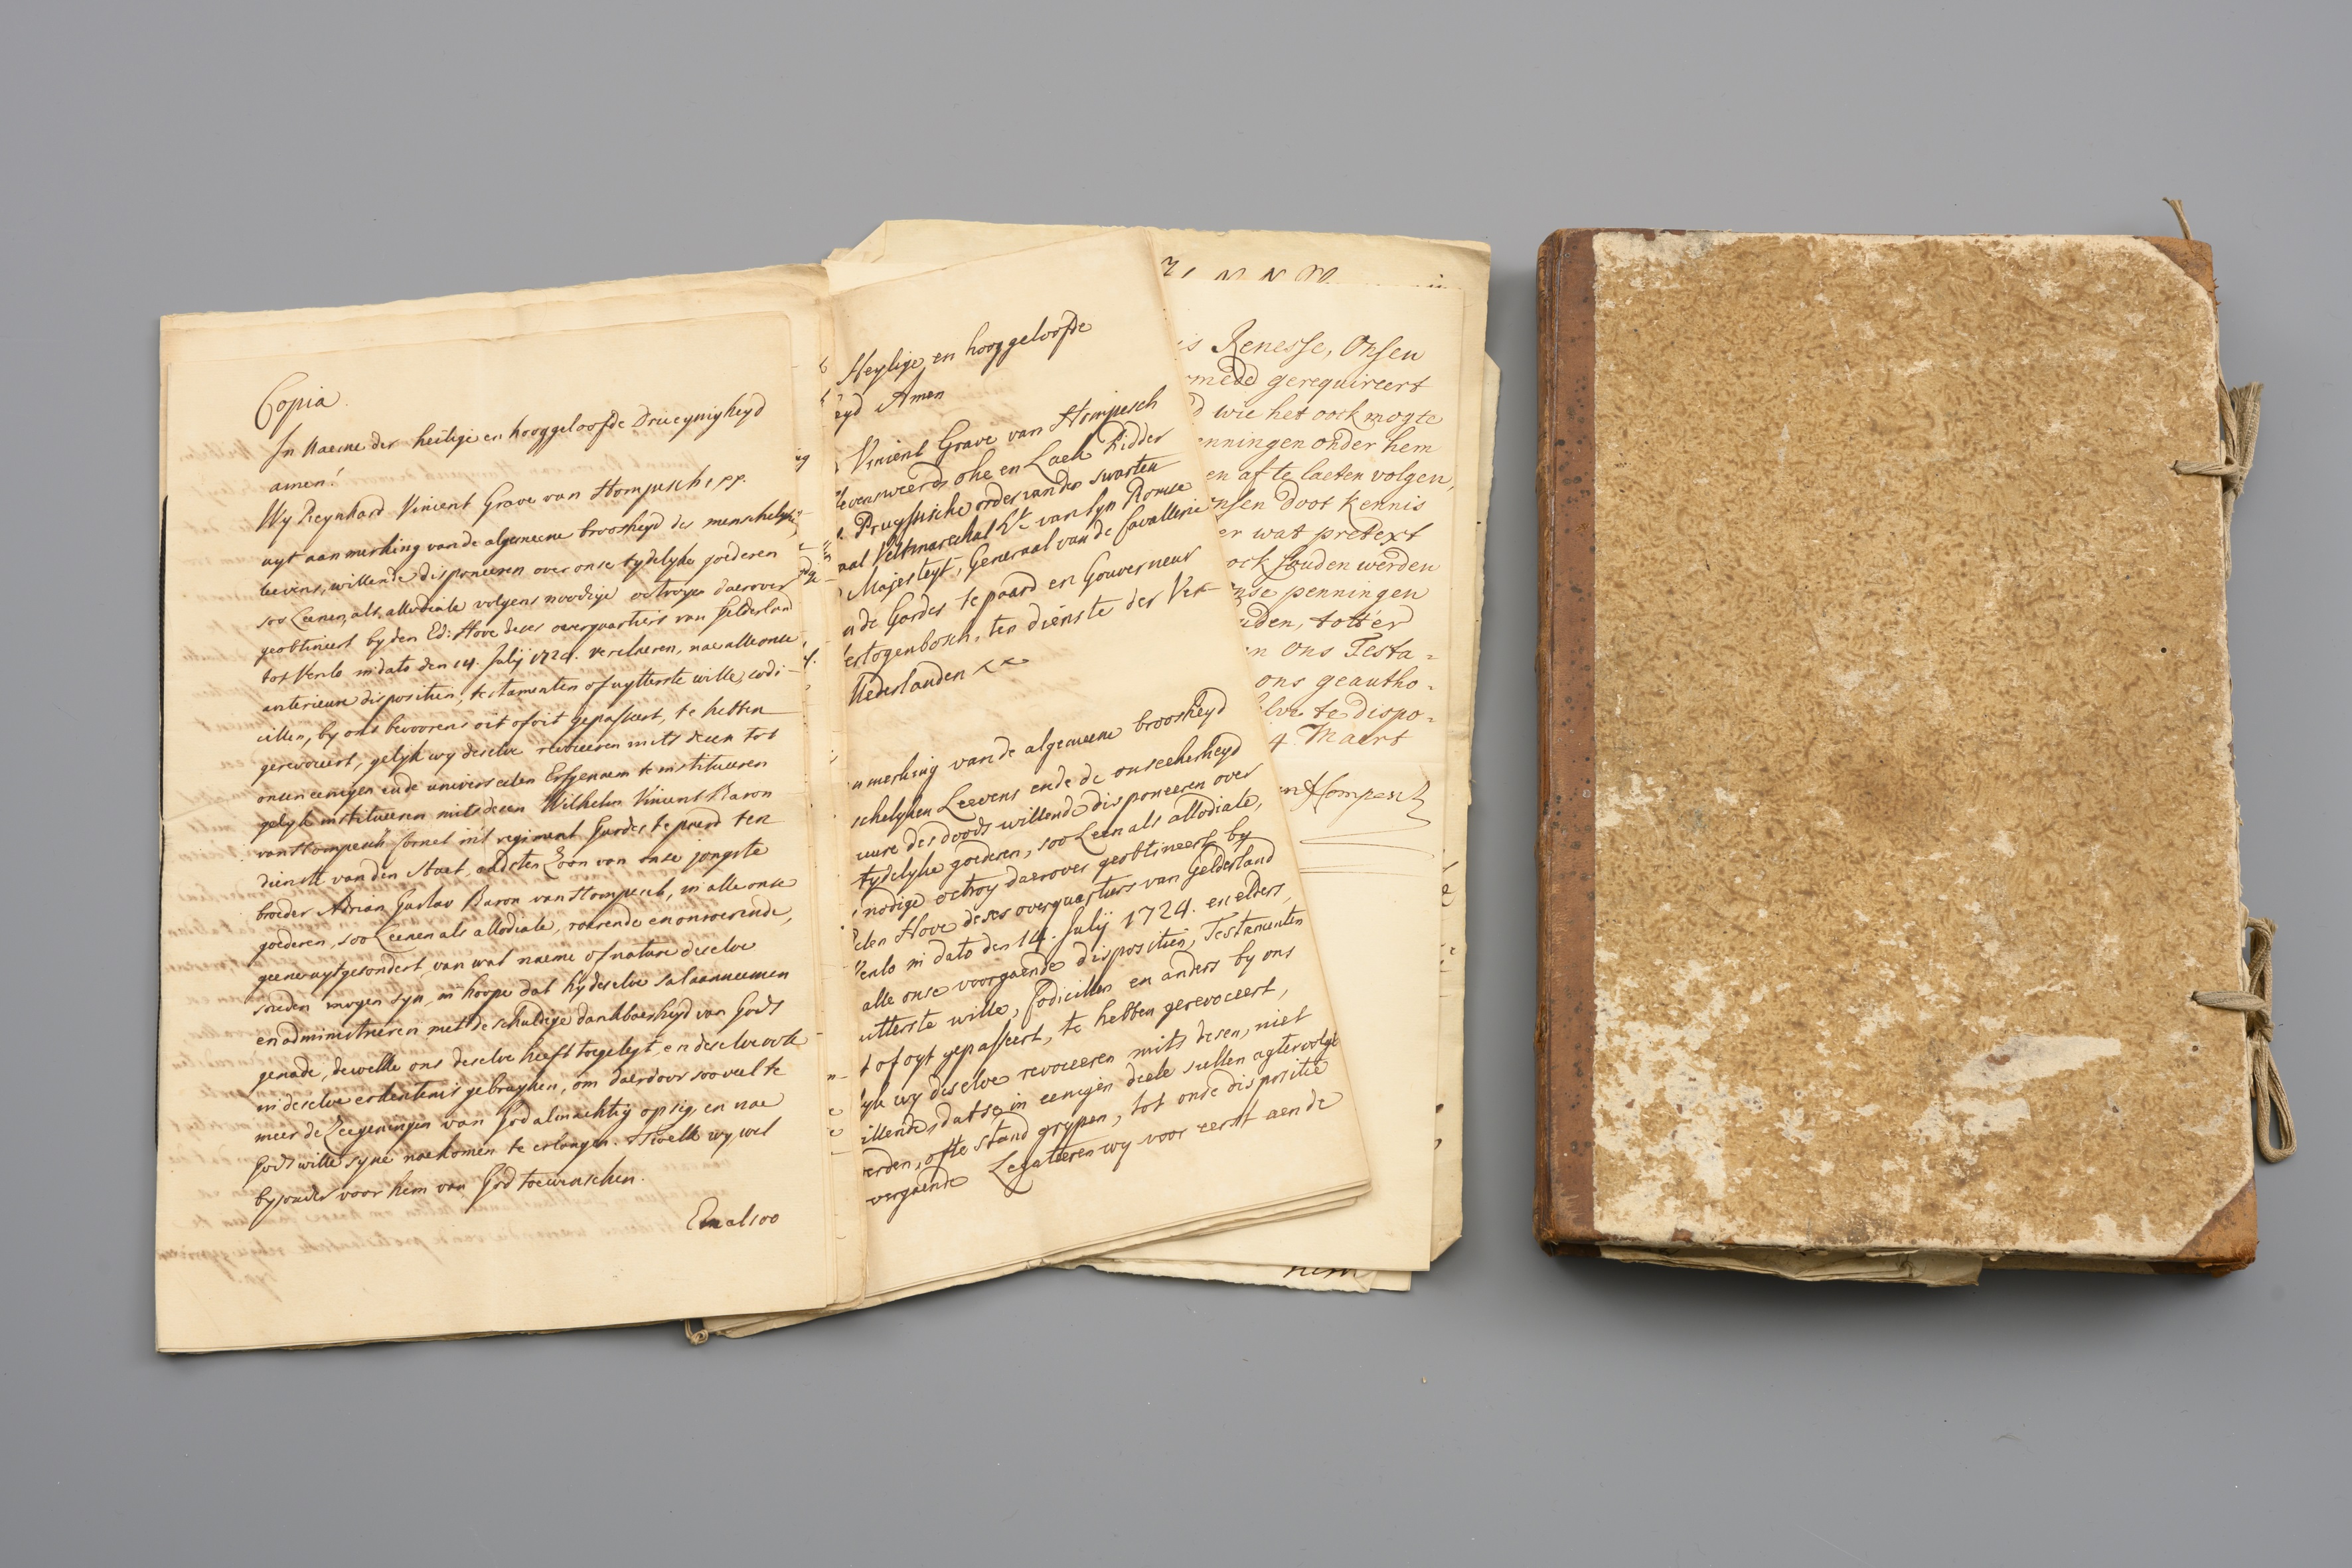 Copia.
In Naeme der heilige en hooggeloofde Drieeynigheyd
amen!
Wy Reynhard Vincent Grave van Hompesch, pp.
uyt aanmerking van de algemeene broosheyd des menschelyke
leevens, willende disponeeren over onse tydelyke goederen
soo Leenen, als allodiale volgens noodige octroyen daerover
geobtineert by den Ed: Hove deses overquartiers van Gelderland
tot Venlo in dato den 14. July 1724. verclaeren, nae alle onse
anterieure dispositien, testamenten of uytterste wille, codi-
cillen, by ons bevoorens oit ofoit gepasseert, te hebben
gerevoceert, gelyk wy deselve revoceeren mits deesen tot
onsen eenigen ende universeelen Erfgenaem te institueeren
gelyk institueeren mits deesen Wilhelm Vincent Baron
van Hompesch Cornet in't regiment Gardes te paerd ten
dienste van den Staet, oudsten Zoon van onse jongste
broeder Adrian Gustav Baron van Hompesch, in alle onse
goederen, soo Leenen als allodiale, roerende en onroerende,
geene uytgesondert, van wat naeme of nature deselve
souden mogen syn, in hoope dat hy deselve sal aanneemen
en administreeren met de schuldige dankbaerheyd van Gods
genade, dewelke ons deselve heeft toegelegt, en deselve ook
in deselve erkentenis gebruyken, om daerdoor soo veel te
meer de Zeegeningen van God almachtig op sig, en nae
Gods wille syne naekomen te erlangen. 't welk wy wel
bysonder voor hem van God toewenschen.
En alsoo
Heylige en hooggeloofde
eyd Amen
Vincent Grave van Hompesch
levensweerd, ohe en Laek Ridder
Pruyssische order van den swarten
aal Veltmarechal Lt. van syn Romse
Majesteyt, Generaal van de Cavallerie
n de Gardes te paard en Gouverneur
ertogenbosch, ten dienste der Ver-
Nederlanden
nmerking van de algemeene broosheyd
schelyken Leevens ende de onseekerheyd
uure des doods willende disponeeren over
tydelyke goederen, soo Leen als allodiale,
nodige octroy daerover geobtineert by
elen Hove deses overquartiers van Gelderland
Venlo in dato den 14. July 1724. en elders,
alle onse voorgaende dispositien, Testamenten
utterste wille, Codicillen en anders by ons
t of oyt gepasseert, te hebben gerevoceert,
yk wy deselve revoceeren mits desen, niet
illende, dat se in eenigen deele sullen agtervolgt
erden, ofte stand grypen, tot onse dispositie
vergaende Legateeren wy voor eerst aen de
is Renesse, Onsen
mede gerequireert
d wie het oock mogte
enningen onder hem
en af te laeten volgen,
nsen doot kennis
er wat pretext
ock souden werden
nse penningen
uden, tot er
n ons Testa=
ons geautho=
lve te dispo=
4 Maert
n Hompesch
hem